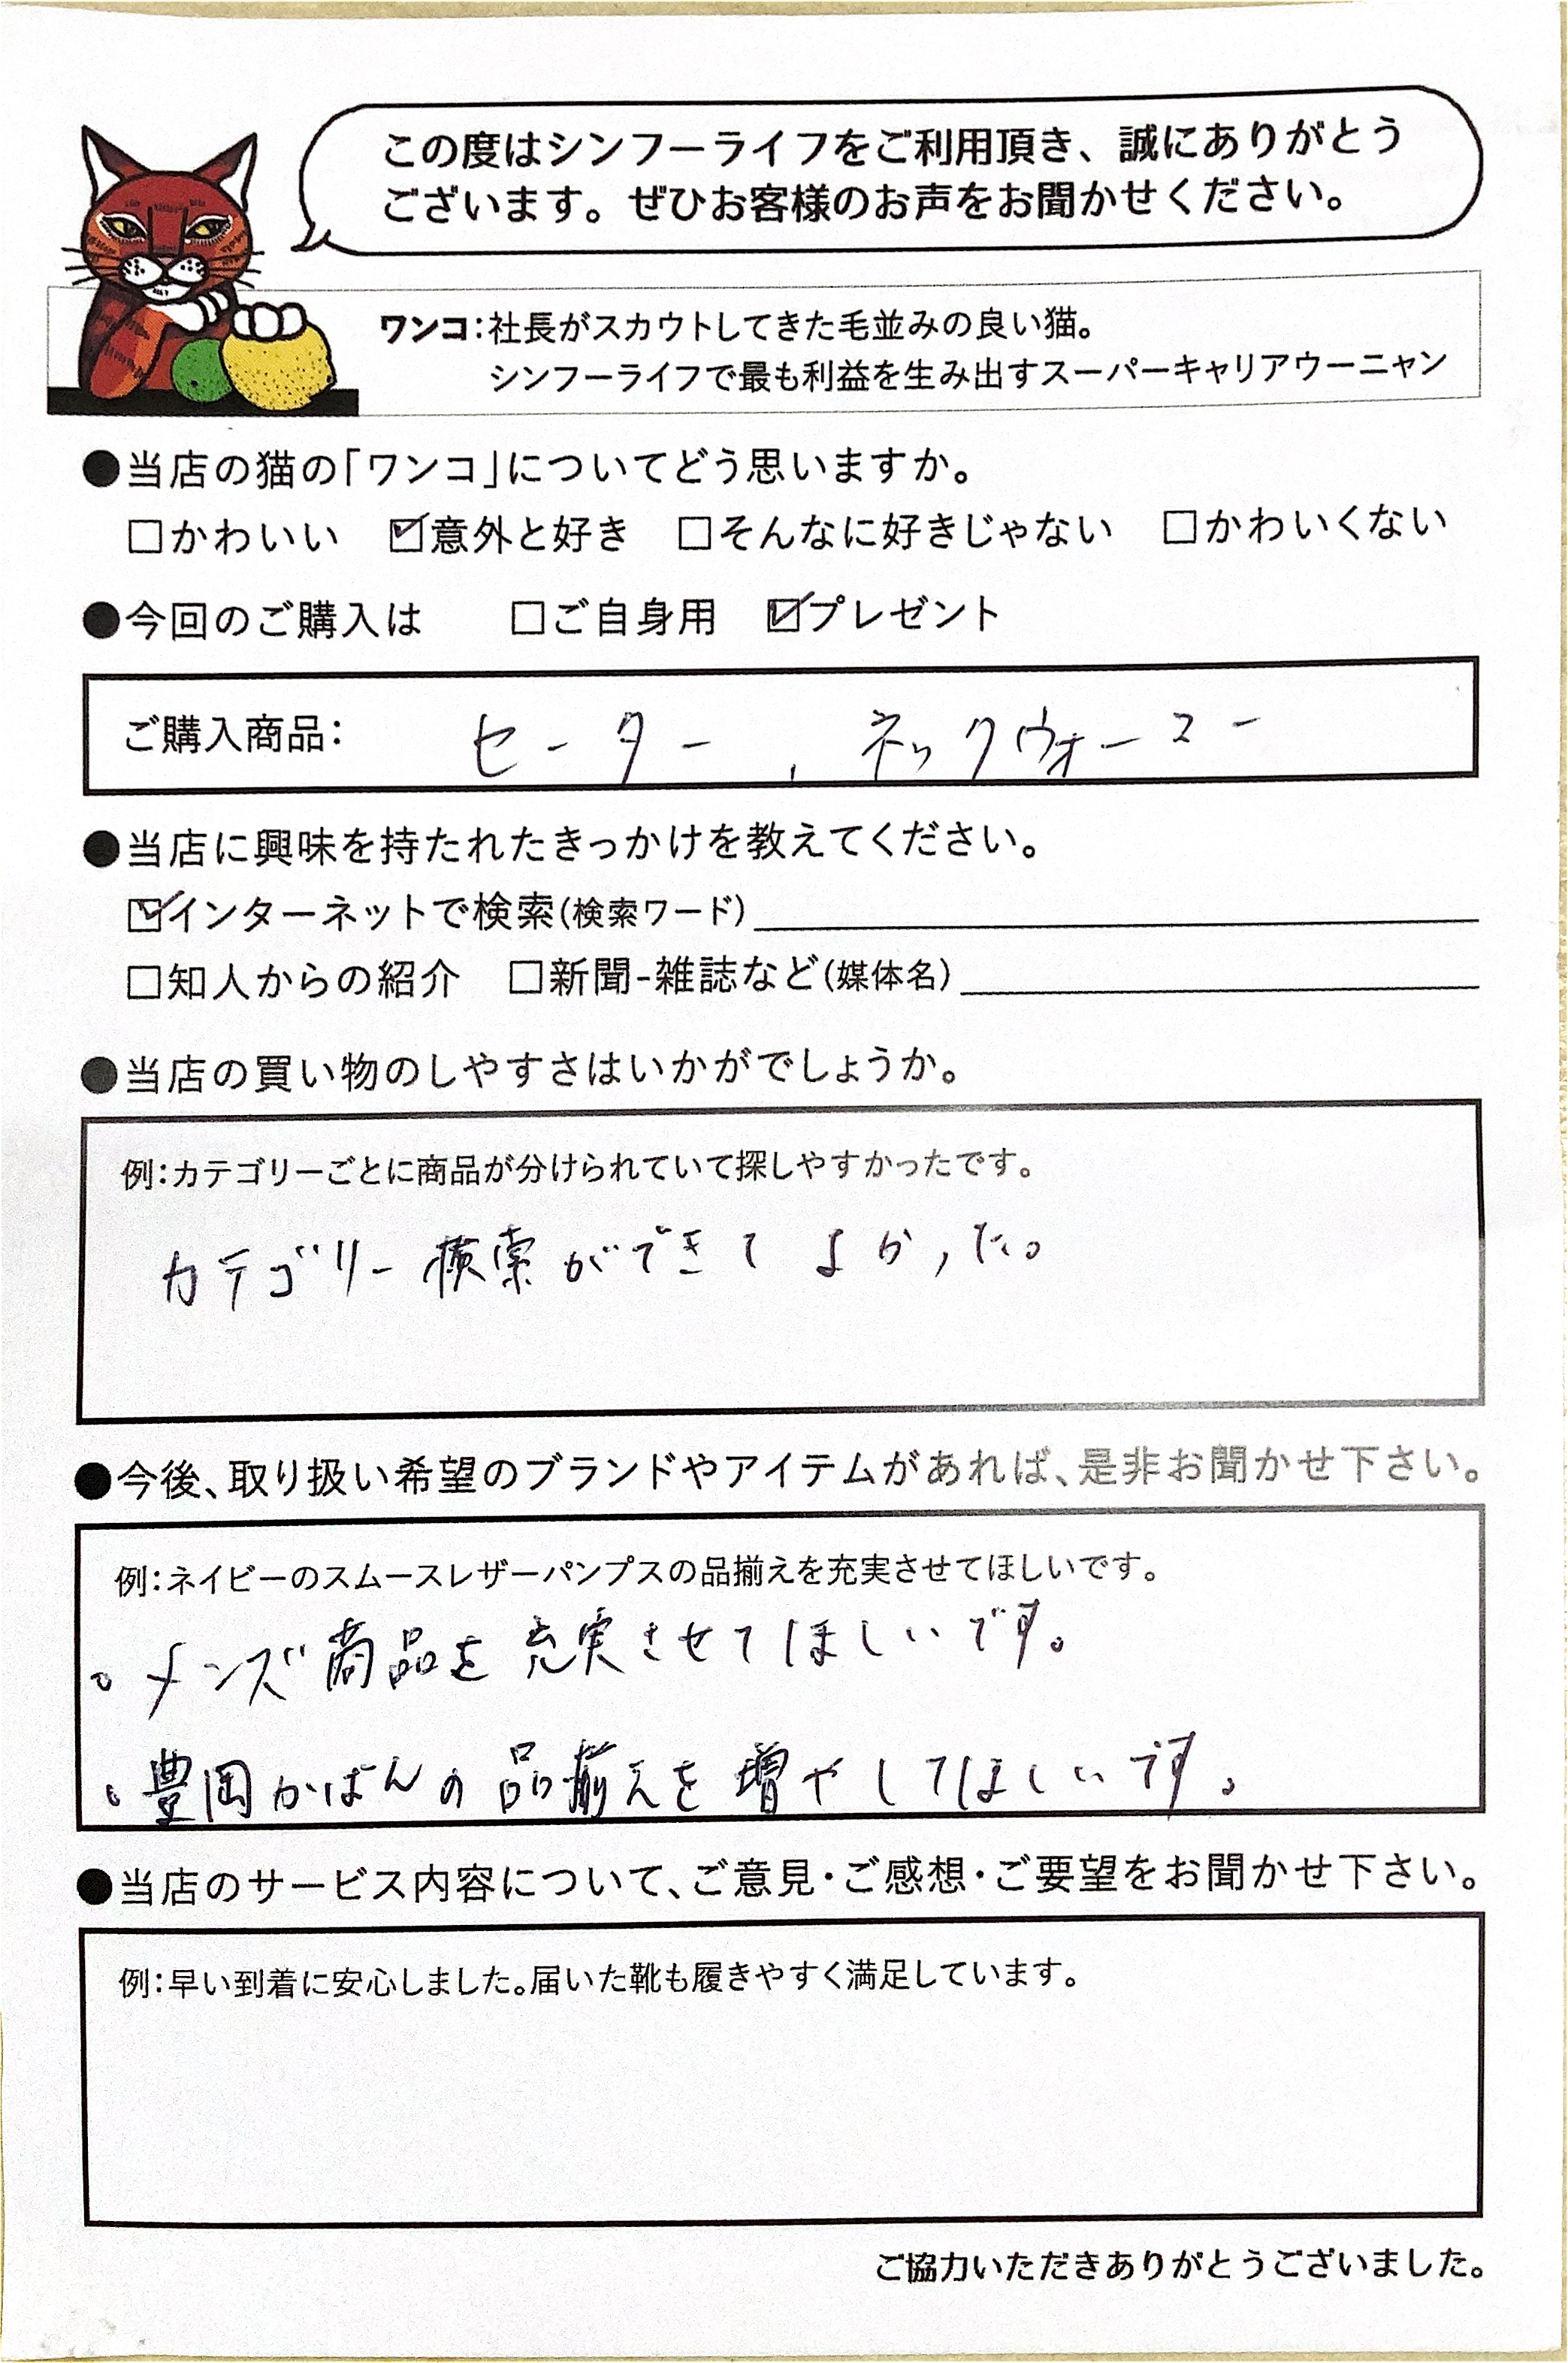 この度はシンフーライフをご利用頂き、誠にありがとう
ございます。ぜひお客様のお声をお聞かせください。
ワンコ：社長がスカウトしてきた毛並みの良い猫。
シンフーライフで最も利益を生み出すスーパーキャリアウーニャン
●当店の猫の「ワンコ」についてどう思いますか。
□かわいい ☑意外と好き □そんなに好きじゃない □かわいくない
●今回のご購入は □ご自身用 ☑プレゼント
ご購入商品： セーター、ネックウォーマー
●当店に興味を持たれたきっかけを教えてください。
☑インターネットで検索(検索ワード)
□知人からの紹介 □新聞-雑誌など(媒体名)
●当店の買い物のしやすさはいかがでしょうか。
例：カテゴリーごとに商品が分けられていて探しやすかったです。
カテゴリー検索ができてよかった。
●今後、取り扱い希望のブランドやアイテムがあれば、是非お聞かせ下さい。
例：ネイビーのスムースレザーパンプスの品揃えを充実させてほしいです。
。メンズ商品を充実させてほしいです。
。豊岡かばんの品揃えを増やしてほしいです。
●当店のサービス内容について、ご意見・ご感想・ご要望をお聞かせ下さい。
例：早い到着に安心しました。届いた靴も履きやすく満足しています。
ご協力いただきありがとうございました。